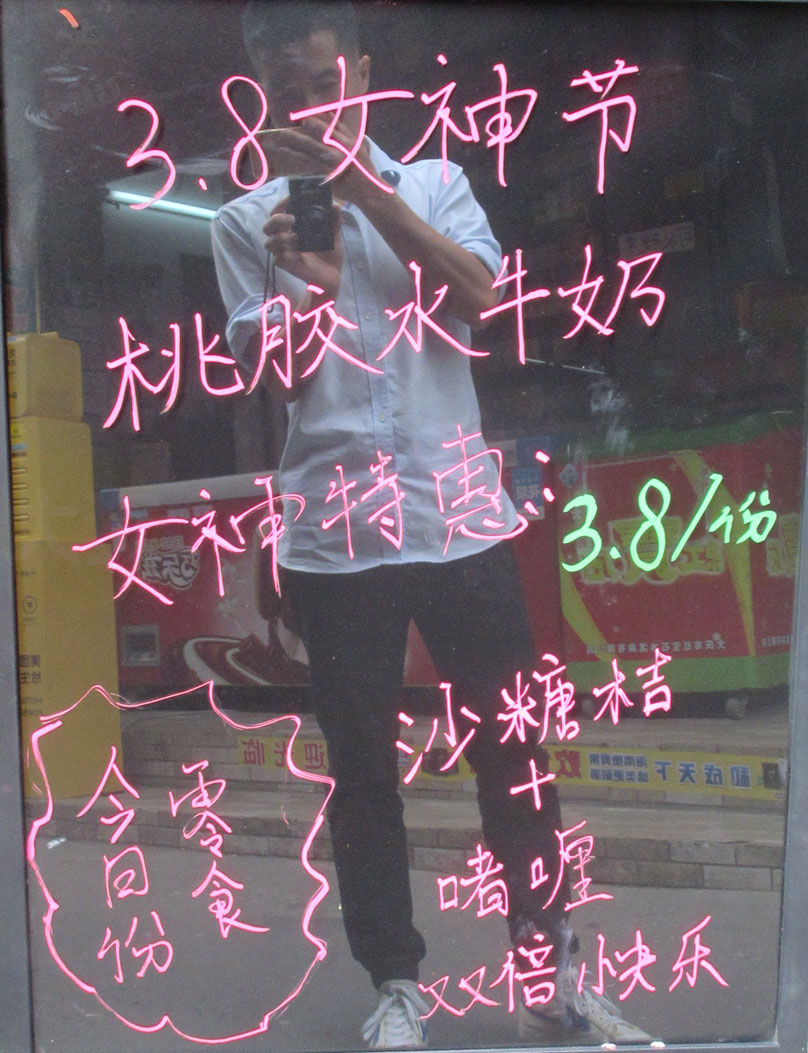 3.8女神节
桃胶水牛奶
女神特惠: 3.8/份
沙糖桔
+
啫喱
双倍快乐
今日份
零食